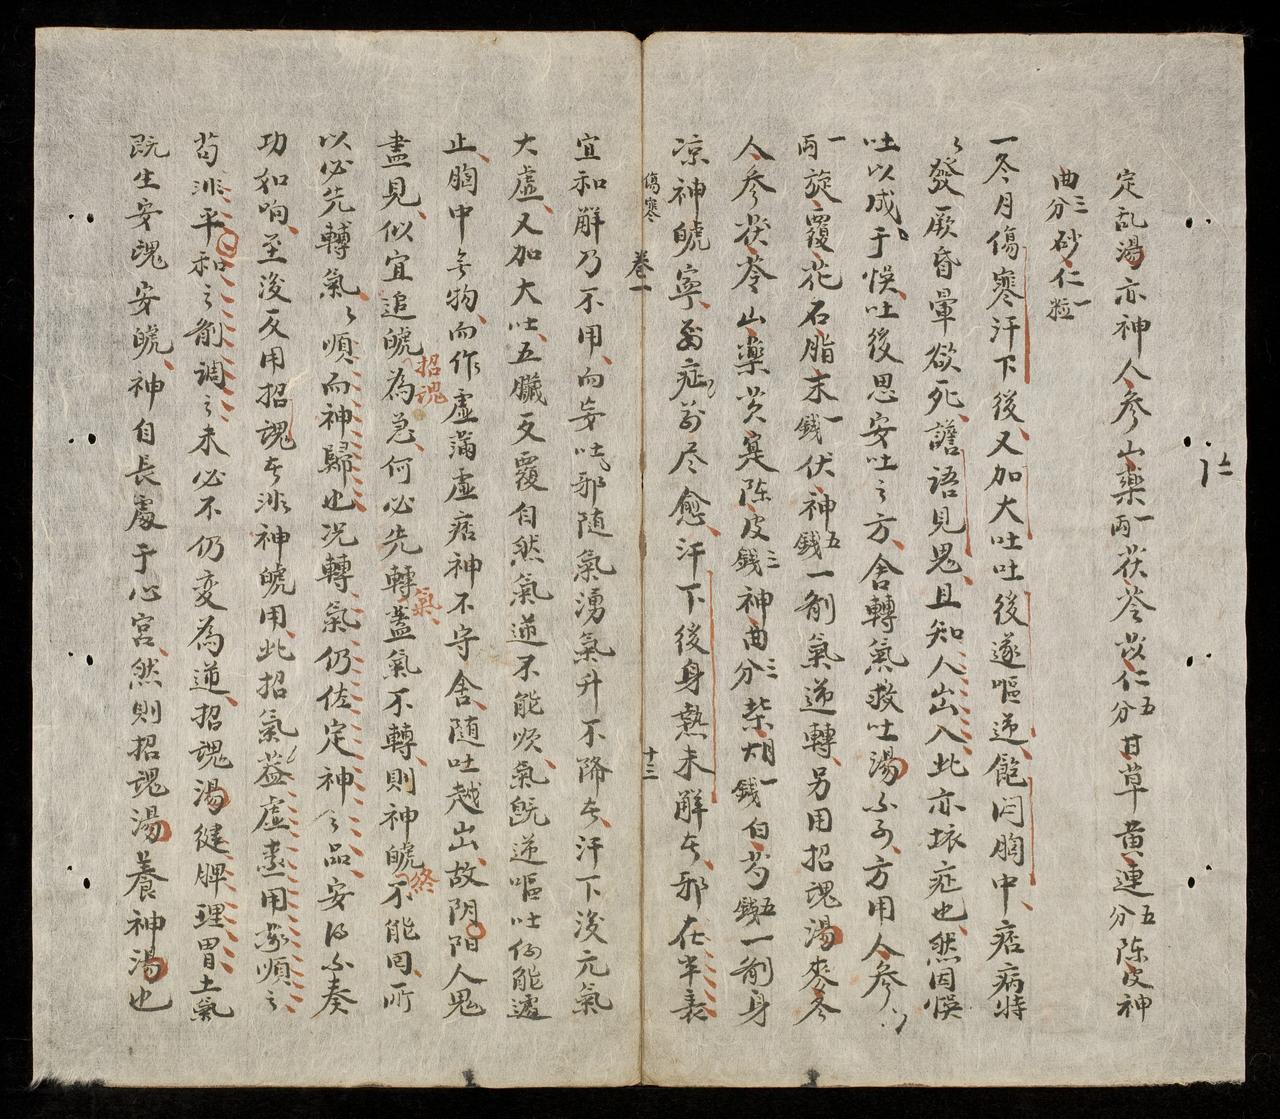 定乱湯亦神人參山藥一兩茯苓苡仁五分甘草黄連五分陳皮神
曲三分砂仁一粒
一冬月傷寒汗下後又加大吐吐後遂嘔逆飽悶胸中痞病特
々發厥昏暈欲死譫語見鬼且知人出入此亦坏症也然因悞
吐以成于悞吐後思安吐之方舍轉氣救吐湯方用人參
一兩旋覆花石脂末一錢伏神五錢一劑氣逆轉另用招魂湯麥冬
人參茯苓山藥芡寔陳皮三錢神曲三分柴胡一錢白芍五錢一劑身
凉神魂寧症尽愈汗下後身熱未解者邪在半表
傷寒 卷一 十三
宜和解乃不用而妄吐邪随氣湧氣升不降者汗下後元氣
大虛又加大吐五臟反覆自然氣逆不能順氣既逆嘔吐能遽
止胸中無物而作虛滿虛痞神不守舍随吐越出故阴阳人鬼
盡見似宜追魂招魂為急何必先轉氣蓋氣不轉則神魂終不能回所
以必先轉氣々順而神歸也况轉氣仍佐定神之品安得不奏
功如响至後反用招魂者非神魂用此招氣蓋虛盡用順之
苟非平和之劑調之未必不仍変為逆招魂湯健脾理胃土氣
既生安魂安魄神自長處于心宫然則招魂湯養神湯也